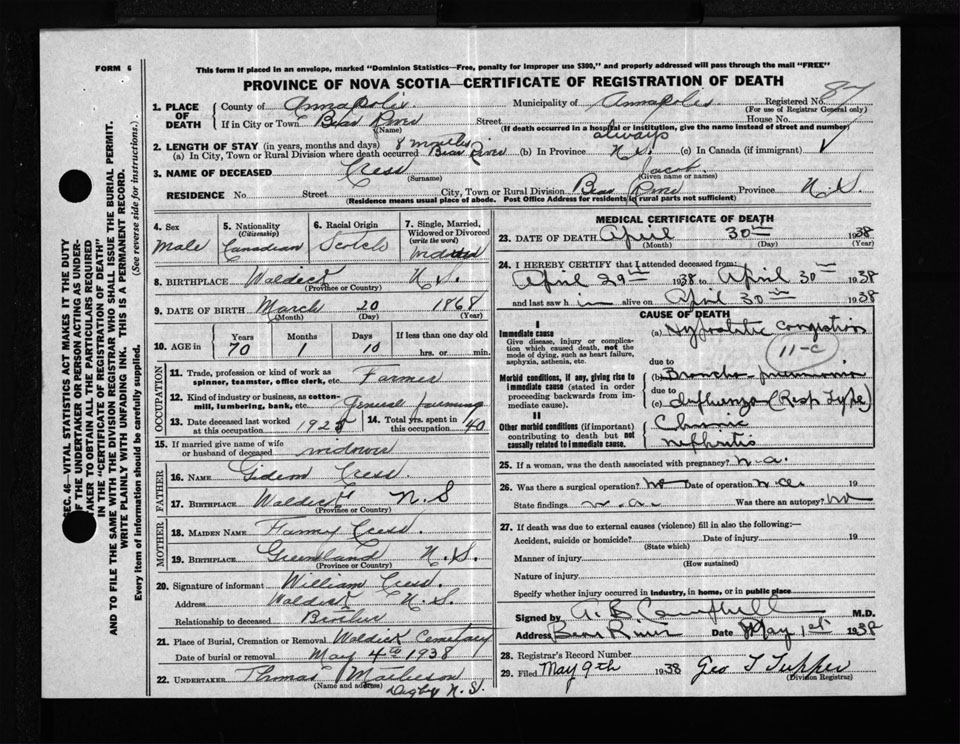 FORM 6
This form if placed in an envelope, marked "Dominion Statistics—Free, penalty for improper use $300," and properly addressed will pass through the mail "FREE"
PROVINCE OF NOVA SCOTIA—CERTIFICATE OF REGISTRATION OF DEATH
SEC. 46—VITAL STATISTICS ACT MAKES IT THE DUTY
OF THE UNDERTAKER OR PERSON ACTING AS UNDER-
TAKER TO OBTAIN ALL THE PARTICULARS REQUIRED
IN THE "CERTIFICATE OF REGISTRATION OF DEATH"
AND TO FILE THE SAME WITH THE DIVISION REGISTRAR WHO SHALL ISSUE THE BURIAL PERMIT.
WRITE PLAINLY WITH UNFADING INK. THIS IS A PERMANENT RECORD.
Every item of information should be carefully supplied. (See reverse side for instructions.)
1. PLACE OF DEATH County of Annapolis Municipality of Annapolis Registered No. 87
(For use of Registrar General only)
If in City or Town Bear River Street House No.
(Name) (If death occurred in a hospital or institution, give the name instead of street and number)
2. LENGTH OF STAY (in years, months and days) 8 months always
(a) In City, Town or Rural Division where death occurred Bear River (b) In Province N.S. (c) In Canada (if immigrant)
3. NAME OF DECEASED Cress Jacob
(Surname) (Given name or names)
RESIDENCE No. Street City, Town or Rural Division Bear River Province N.S.
(Residence means usual place of abode. Post Office Address for residents in rural parts not sufficient)
4. Sex Male
5. Nationality (Citizenship) Canadian
6. Racial Origin Scotch
7. Single, Married, Widowed or Divorced (write the word) widower
8. BIRTHPLACE Waldick N.S.
(Province or Country)
9. DATE OF BIRTH March 20 1868
(Month) (Day) (Year)
10. AGE in Years 70 Months 1 Days 10 If less than one day old
hrs. or min.
OCCUPATION
11. Trade, profession or kind of work as spinner, teamster, office clerk, etc. Farmer
12. Kind of industry or business, as cotton-mill, lumbering, bank, etc. General farming
13. Date deceased last worked at this occupation 1925 14. Total yrs. spent in this occupation 40
15. If married give name of wife or husband of deceased widower
FATHER
16. NAME Gideon Cress
17. BIRTHPLACE Waldick N.S
(Province or Country)
MOTHER
18. MAIDEN NAME Fanny Cress.
19. BIRTHPLACE Greenland N.S.
(Province or Country)
20. Signature of informant William Cress.
Address Waldick N.S.
Relationship to deceased Brother
21. Place of Burial, Cremation or Removal Waldick Cemetary
Date of burial or removal May 4th 1938
22. UNDERTAKER Thomas Matheson
(Name and address) Digby N.S.
MEDICAL CERTIFICATE OF DEATH
23. DATE OF DEATH April 30th 1938
(Month) (Day) (Year)
24. I HEREBY CERTIFY that I attended deceased from:
April 29th 1938 to April 30th 1938
and last saw him alive on April 30th 1938
CAUSE OF DEATH
I
Immediate cause
Give disease, injury or complication which caused death, not the mode of dying, such as heart failure, asphyxia, asthenia, etc.
(a) Hypostatic congestion
11-c
due to
Morbid conditions, if any, giving rise to immediate cause (stated in order proceeding backwards from immediate cause).
(b) Broncho-pneumonia
due to
(c) Influenza (Resp. Type)
II
Other morbid conditions (if important) contributing to death but not causally related to immediate cause.
Chronic
nephritis
25. If a woman, was the death associated with pregnancy? n.a.
26. Was there a surgical operation? no Date of operation n.a. 19
State findings n.a. Was there an autopsy? no
27. If death was due to external causes (violence) fill in also the following:—
Accident, suicide or homicide? Date of injury 19
(State which)
Manner of injury
(How sustained)
Nature of injury
Specify whether injury occurred in industry, in home, or in public place
Signed by A. B. Campbell M.D.
Address Bear River Date May 1st 1938
28. Registrar's Record Number
29. Filed May 9th 1938 Geo T Tupper
(Division Registrar)